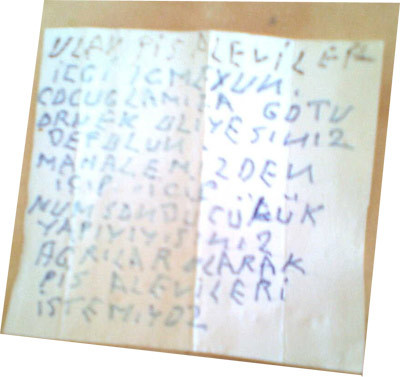 ULAN PİS ALEVİLER
İCGİ İCMEYUN
COCUGLAMIZA GOTU
ORNEK OLIYESINIZ
DEFOLUN
MAHALEMIZDEN
ICIP ICIP

YAPIYIYISINIZ
AGRILAR OLARAK
PİS ALEVİLERİ
İSTEMIYOZ